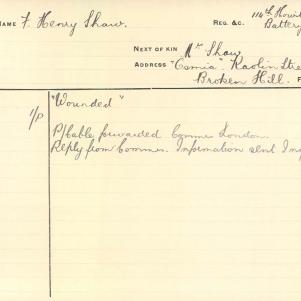 NAME F. Henry Shaw. REG. &C. 114th Howit
Battery
NEXT OF KIN Mr Shaw
ADDRESS "Cosmia" Kaolin Stre
Broken Hill.
1/P "Wounded"
P/table forwarded Commr London.
Reply from Commr. Information sent Inq